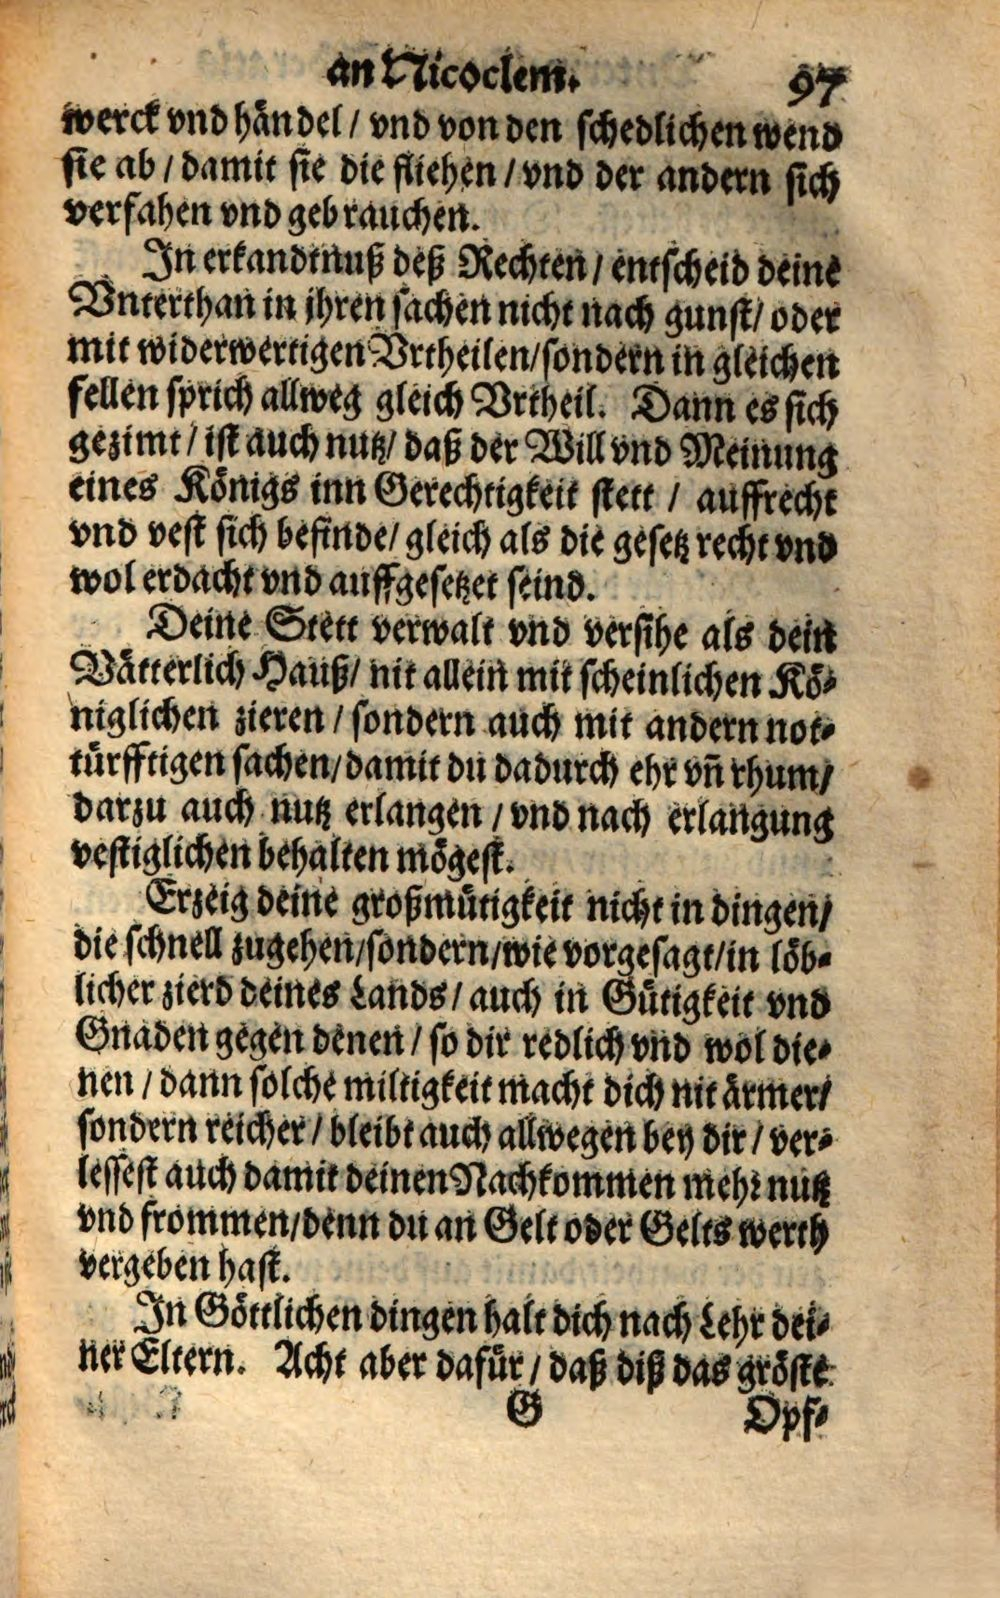 an Nicoclem. 97
werck vnd händel / vnd von den schedlichen wend
sie ab / damit sie die fliehen / vnd der andern sich
verfahen vnd gebrauchen.
In erkandtnuß deß Rechten / entscheid deine
Vnterthan in jhren sachen nicht nach gunst / oder
mit widerwertigen Vrtheilen / sondern in gleichen
fellen sprich allweg gleich Vrtheil. Dann es sich
gezimt / ist auch nutz / daß der Will vnd Meinung
eines Königs inn Gerechtigkeit stett / auffrecht
vnd vest sich befinde / gleich als die gesetz recht vnd
wol erdacht vnd auffgesetzet seind.
Deine Stett verwalt vnd versihe als dein
Vätterlich Hauß / nit allein mit scheinlichen Kö-
niglichen zieren / sondern auch mit andern not-
türfftigen sachen / damit du dadurch ehr vn̄ rhum /
darzu auch nutz erlangen / vnd nach erlangung
vestiglichen behalten mögest.
Erzeig deine großmütigkeit nicht in dingen /
die schnell zugehen / sondern / wie vorgesagt / in löb-
licher zierd deines Lands / auch in Gütigkeit vnd
Gnaden gegen denen / so dir redlich vnd wol die-
nen / dann solche miltigkeit macht dich nit ärmer /
sondern reicher / bleibt auch allwegen bey dir / ver-
lessest auch damit deinen Nachkommen mehr nutz
vnd frommen / denn du an Gelt oder Gelts werth
vergeben hast.
In Göttlichen dingen halt dich nach Lehr dei-
ner Eltern. Acht aber dafür / daß diß das gröste
G Opf-